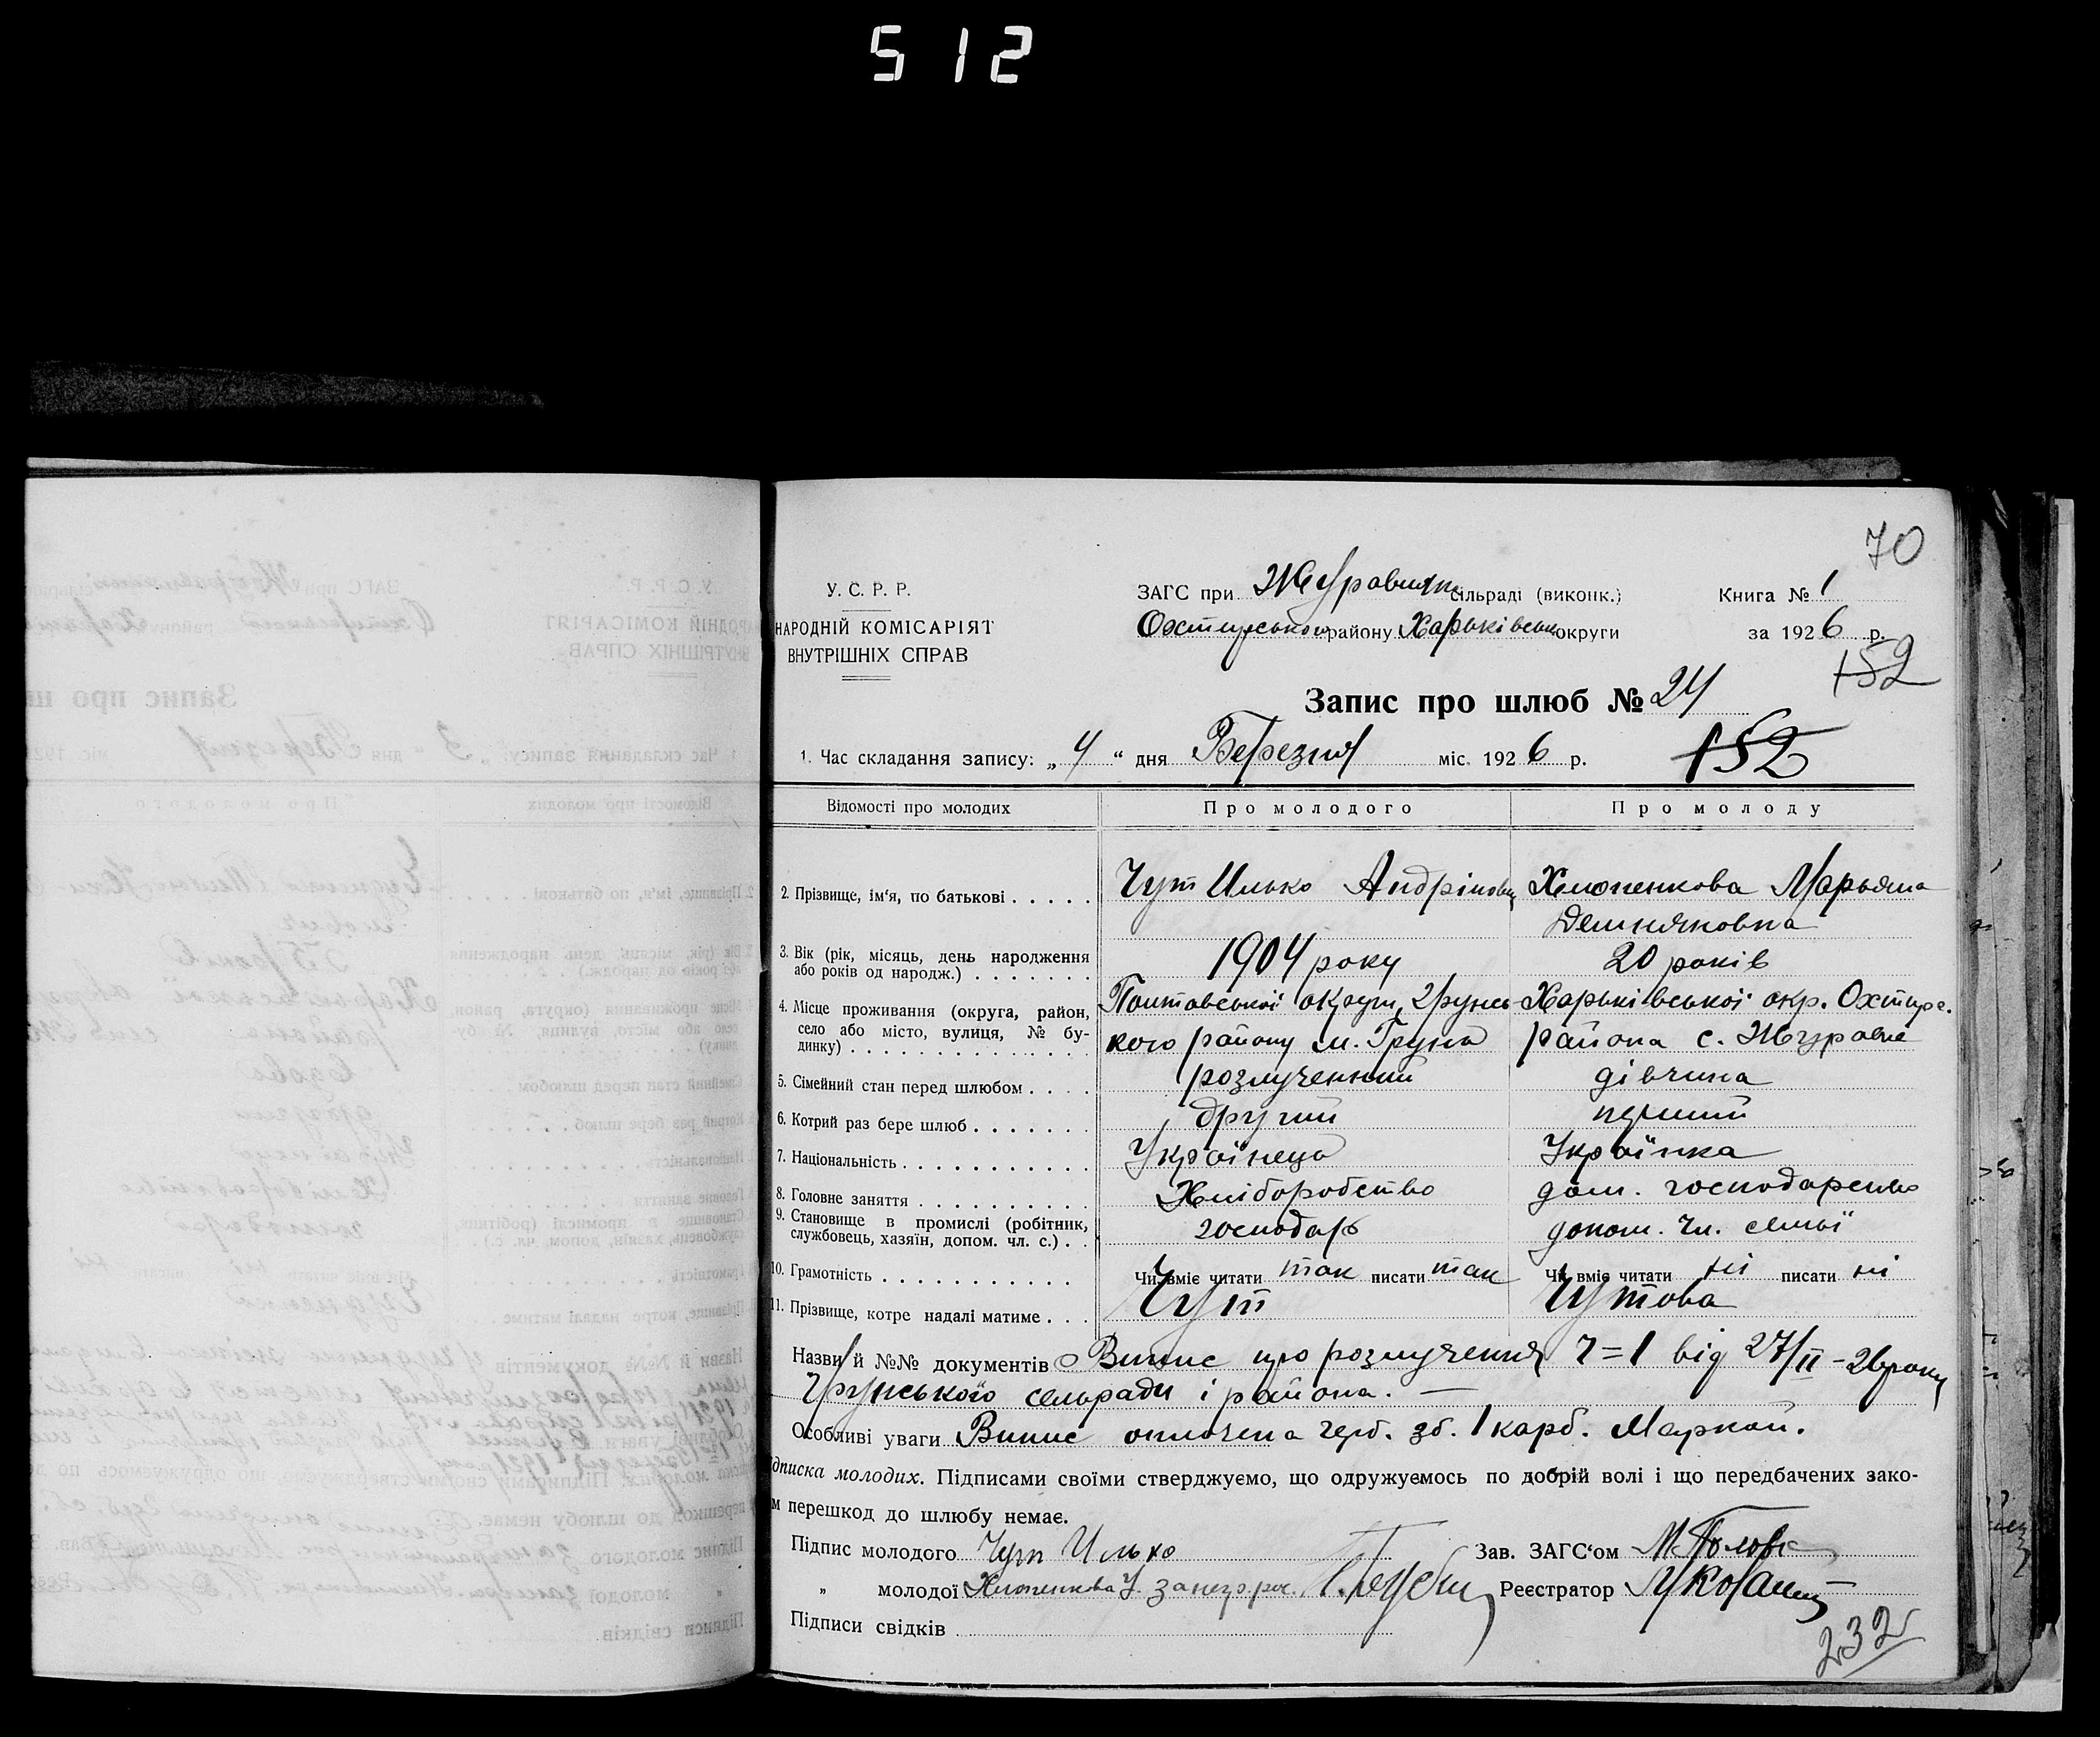 512
70
У. С. Р. Р.
НАРОДНІЙ КОМІСАРІЯТ
ВНУТРІШНІХ СПРАВ
ЗАГС при Журавнян сільраді (виконк.) Книга № 1
Охтирського району Харьківськ округи за 1926 р.
152
Запис про шлюб № 24
1. Час складання запису: „4“ дня Березня міс. 1926 р. 152
Відомості про молодих Про молодого Про молоду
2. Прізвище, ім'я, по батькові Чут Илько Андрієвич Хмоненкова Марьяна
Демняковна
3. Вік (рік, місяць, день народження
або років од народж.) 1904 року 20 років
4. Місце проживання (округа, район, Полтавської округи, Грунсь- Харьківської окр. Охтирс.
село або місто, вулиця, № бу- кого району м. Грунь района с. Журавне
динку)
5. Сімейний стан перед шлюбом розлученний дівчина
6. Котрий раз бере шлюб другий перший
7. Національність Українець Українка
8. Головне заняття Хліборобство дом. господарство
9. Становище в промислі (робітник,
службовець, хазяїн, допом. чл. с.) господарь допом. чл. семьї
10. Грамотність Чи вміє читати так писати так Чи вміє читати ні писати ні
11. Прізвище, котре надалі матиме Чут Чутова
Назви й №№ документів Випис про розлучення Ч=1 від 27/II-26 року
Грунського сельради і района. —
Особливі уваги Випис оплочена герб. зб. 1 карб. Маркой.
дписка молодих. Підписами своїми стверджуємо, що одружуємось по добрій волі і що передбачених зако-
м перешкод до шлюбу немає.
Підпис молодого Чут Илько Зав. ЗАГС'ом
„ молодої Хмоненкова За негр. рос. Реєстратор
Підписи свідків
232